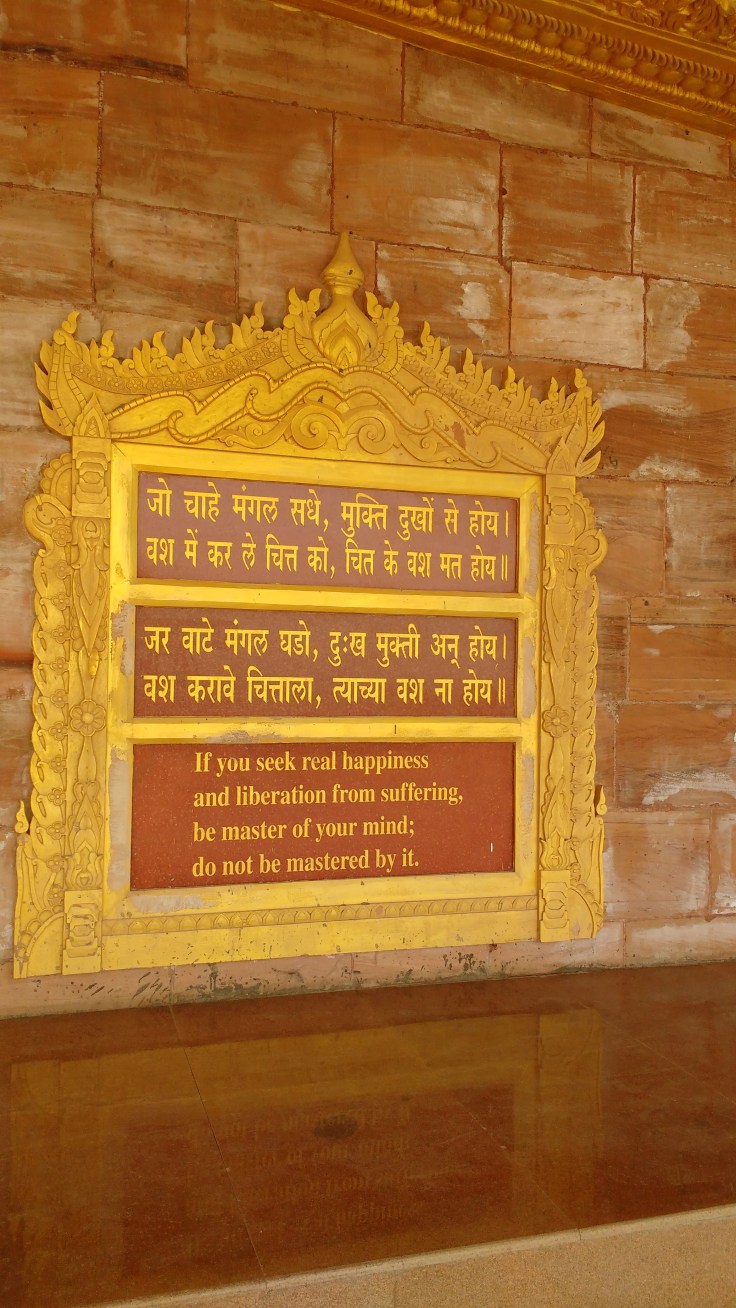 जो चाहे मंगल सधे, मुक्ति दुखों से होय।
वश में कर ले चित्त को, चित के वश मत होय॥
जर वाटे मंगल घडो, दुःख मुक्ती अन् होय।
वश करावे चित्ताला, त्याच्या वश ना होय॥
If you seek real happiness
and liberation from suffering,
be master of your mind;
do not be mastered by it.